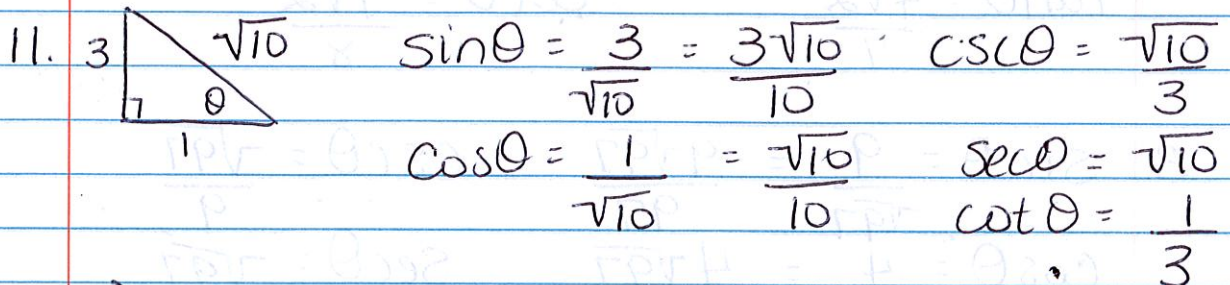 11. 3 √10 θ 1
sinθ = 3/√10 = 3√10/10 cscθ = √10/3
cosθ = 1/√10 = √10/10 secθ = √10
cotθ = 1/3